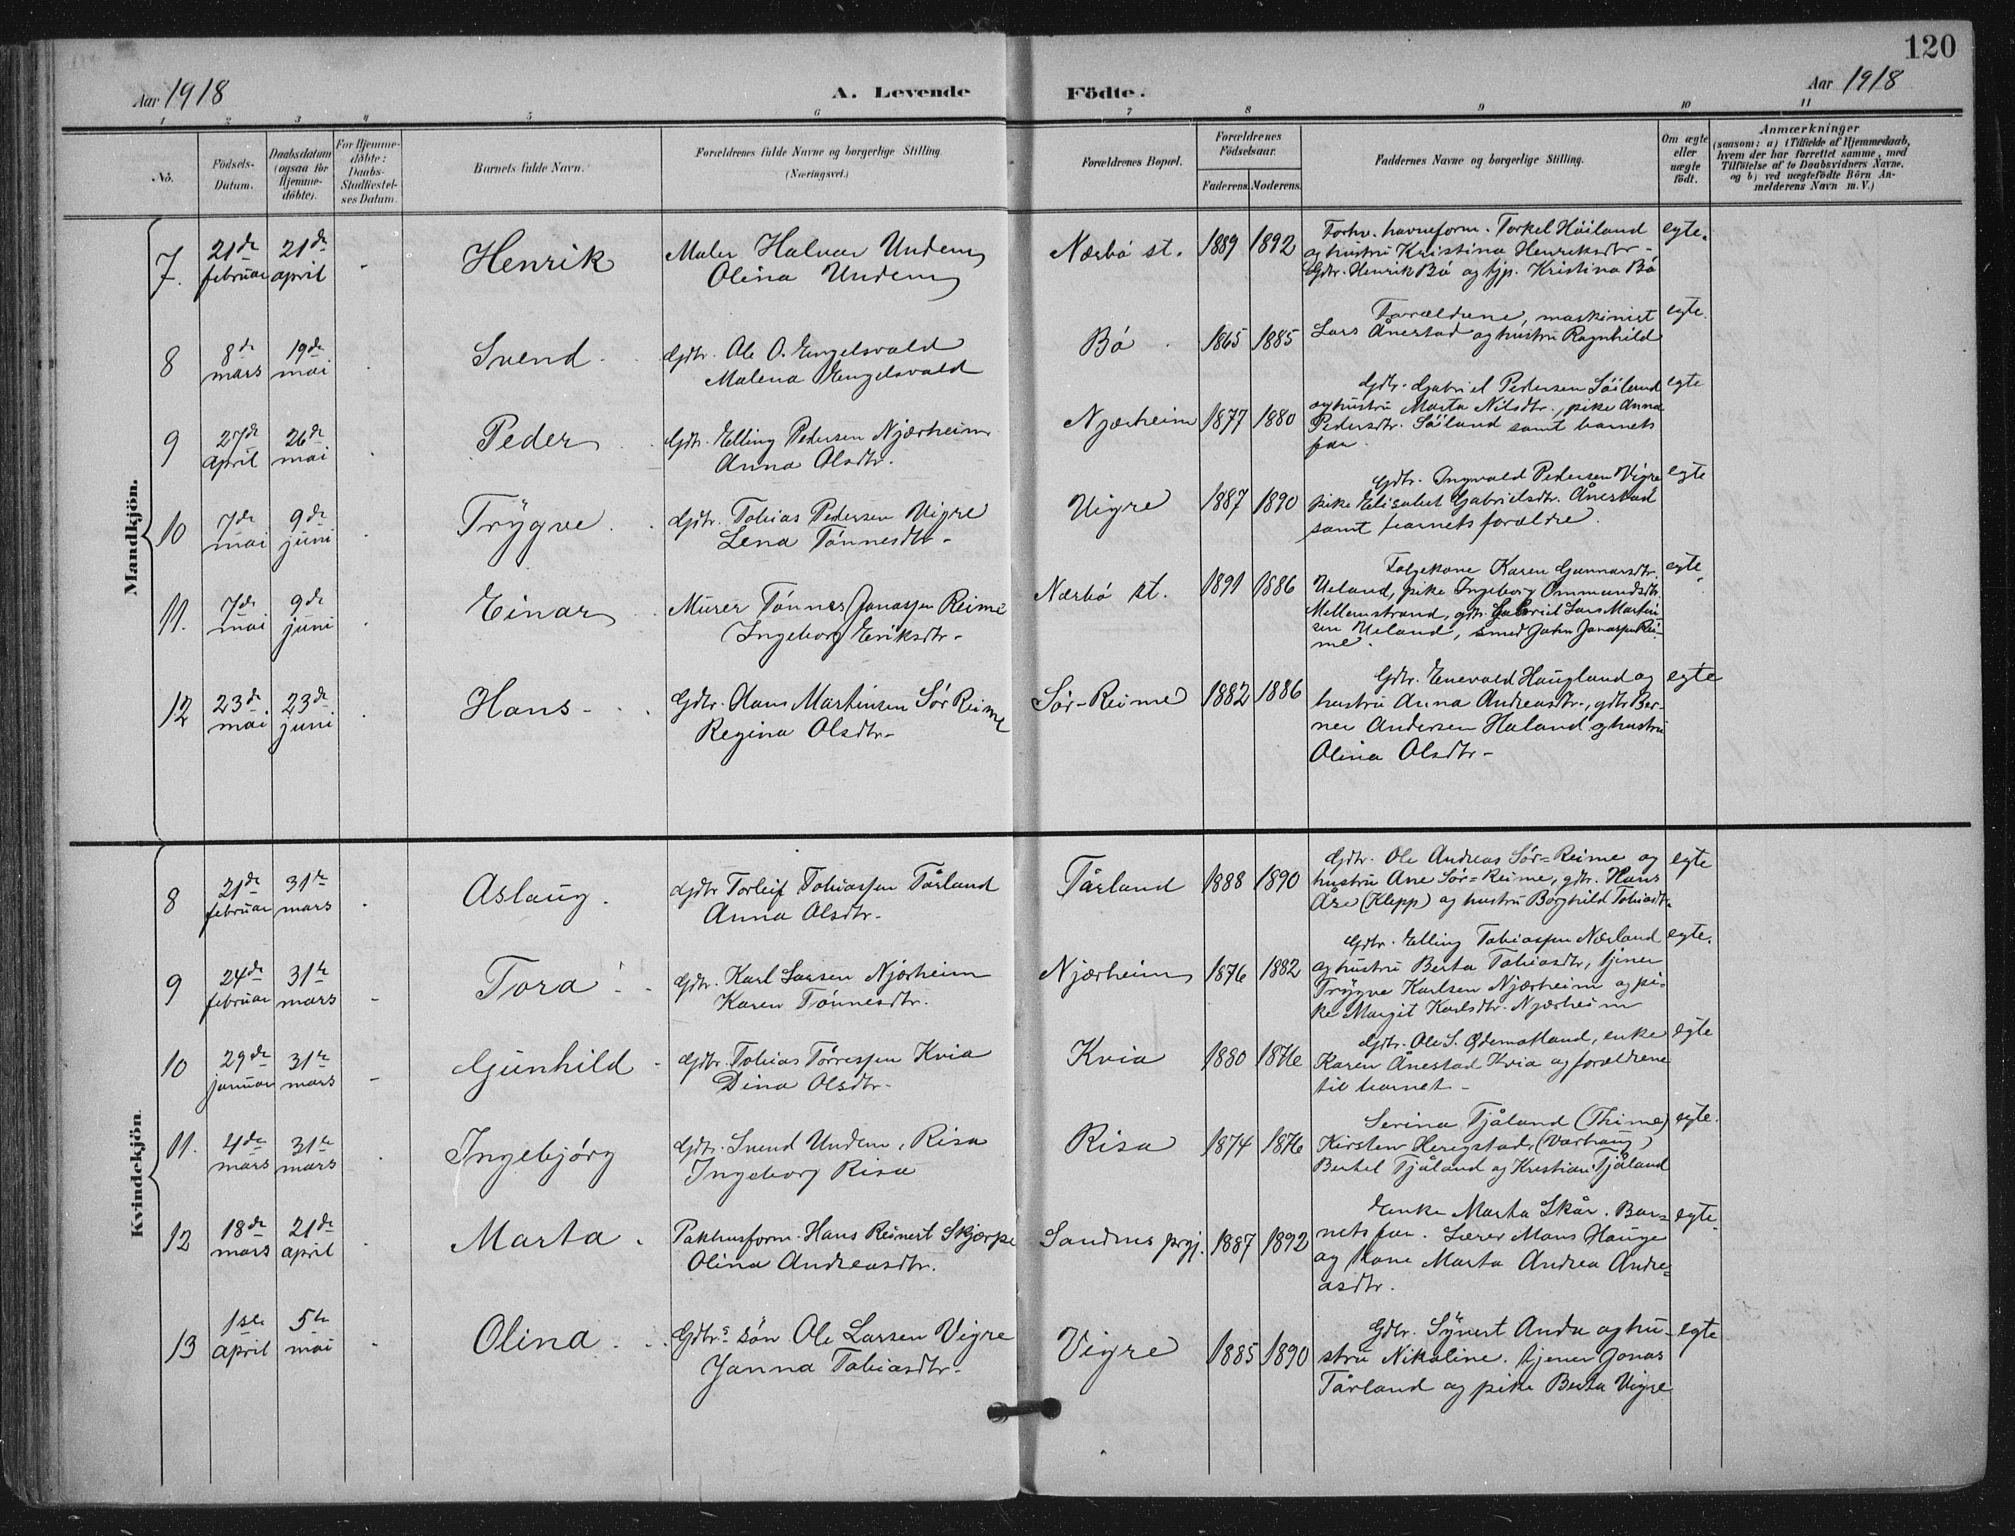 120
Aar 1918 A. Levende Födte. Aar 1918
1 2 3 4 5 6 7 8 9 10 11
No.
Födsels-Datum.
Daabsdatum (ogsaa for Hjemme-döbte).
For Hjemme-döbte: Daabs-Stadfæstel-ses Datum.
Barnets fulde Navn.
Forældrenes fulde Navne og borgerlige Stilling. (Næringsvei.)
Forældrenes Bopæl.
Forældrenes Födselsaar.
Faderens. Moderens.
Faddernes Navne og borgerlige Stilling.
Om ægte eller uægte födt.
Anmærkninger
(saasom: a) i Tilfælde af Hjemmedaab, hvem der har forrettet samme, med Tilföielse af to Daabsvidners Navne, og b) ved uægtefödte Börn Anmelderens Navn m. V.)
Mandkjön.
7. 21de februar 21de april Henrik
Maler Halvar Undem
Olina Undem
Nærbø st. 1889 1892
Forhv. havneform. Torkel Høiland
og hustru Kristina Henriksdtr -
Gdtr. Henrik Bø og tjp. Kristina Bø
egte.
8 8de mars 19de mai Svend
Gdtr. Ole O. Engelsvold
Malena Engelsvold
Bø 1865 1885
Forældrene, maskinist
Lars Ånestad og hustru Ragnhild
egte.
9 27de april 26de mai Peder
Gdtr. Elling Pedersen Njærheim
Anna Olsdtr.
Njærheim 1877 1880
Gdtr. Gabriel Pedersen Søiland
og hustru Marta Nilsdtr., pike Anna
Pedersdtr. Søiland samt barnets
far
egte
10 7de mai 9de juni Trygve
Gdtr. Tobias Pedersen Vigre
Lena Tønnesdtr -
Vigre 1887 1890
Gdtr. Ingvald Pedersen Vigre
pike Elisabet Gabrielsdtr. Ånestad
samt barnets forældre.
egte
11. 7de mai 9de juni Einar
Murer Tønnes Jonassen Reime
Ingeborg Eriksdtr -
Nærbø st. 1891 1886
Følgekone Karen Gunnarsdtr.
Ueland, pike Ingeborg Ommundsdtr.
Mellemstrand, gdtr. Gabriel Lars Martin-
sen Ueland, smed John Jonassen Rei-
me.
egte.
12 23de mai 23de juni Hans
Gdtr. Hans Martinsen Sør Reime
Regina Olsdtr -
Sør-Reime 1882 1886
Gdtr. Enevald Haugland og
hustru Anna Andreasdtr., gdtr Ber-
ner Andersen Haland og hustru
Olina Olsdtr -
egte
Kvindekjön.
8 21de februar 31te mars Aslaug.
Gdtr Torleif Tobiassen Tårland
Anna Olsdtr -
Tårland 1888 1890
Gdtr. Ole Andreas Sør=Reime og
hustru Ane Sør=Reime, gdtr. Hans
Åse (Klepp) og hustru Borghild Tobiasdtr.
egte
9 24de februar 31te mars Tora
Gdtr. Karl Larsen Njærheim
Karen Tønnesdtr.
Njærheim 1876 1882
Gdtr. Elling Tobiassen Nærland
og hustru Berta Tobiasdtr, tjener
Trygve Karlsen Njærheim og pi-
ke Margit Karlsdtr. Njærheim
egte.
10 29de januar 31te mars Gunhild
Gdtr. Tobias Tørressen Kvia
Dina Olsdtr -
Kvia 1880 1876
Gdtr. Ole S. Ødemotland, enke
Karen Ånestad Kvia og forældrene
til barnet -
egte
11. 4de mars 31te mars Ingebjørg
Gdtr. Svend Undem, Risa
Ingeborg Risa
Risa 1874 1876
Serina Tjåland (Thime)
Kirsten Heregstad, (Varhaug)
Bertel Tjåland og Kristian Tjåland
egte.
12 18de mars 21de april Marta
Pakhusform. Hans Reinert Skjærpe
Olina Andreasdtr.
Sandnes prgj. 1887 1892
Enke Marta Skår. Bar=
nets far. Lærer Mons Hauge
og kone Marta Andrea Andre=
asdtr.
egte.
13 1ste april 5te mai Olina
Gdtr.s søn Ole Larsen Vigre
Janna Tobiasdtr -
Vigre 1885 1890
Gdtr. Synert Anda og hu-
stru Nikoline. tjener Jonas
Tårland og pike Berta Vigre
egte